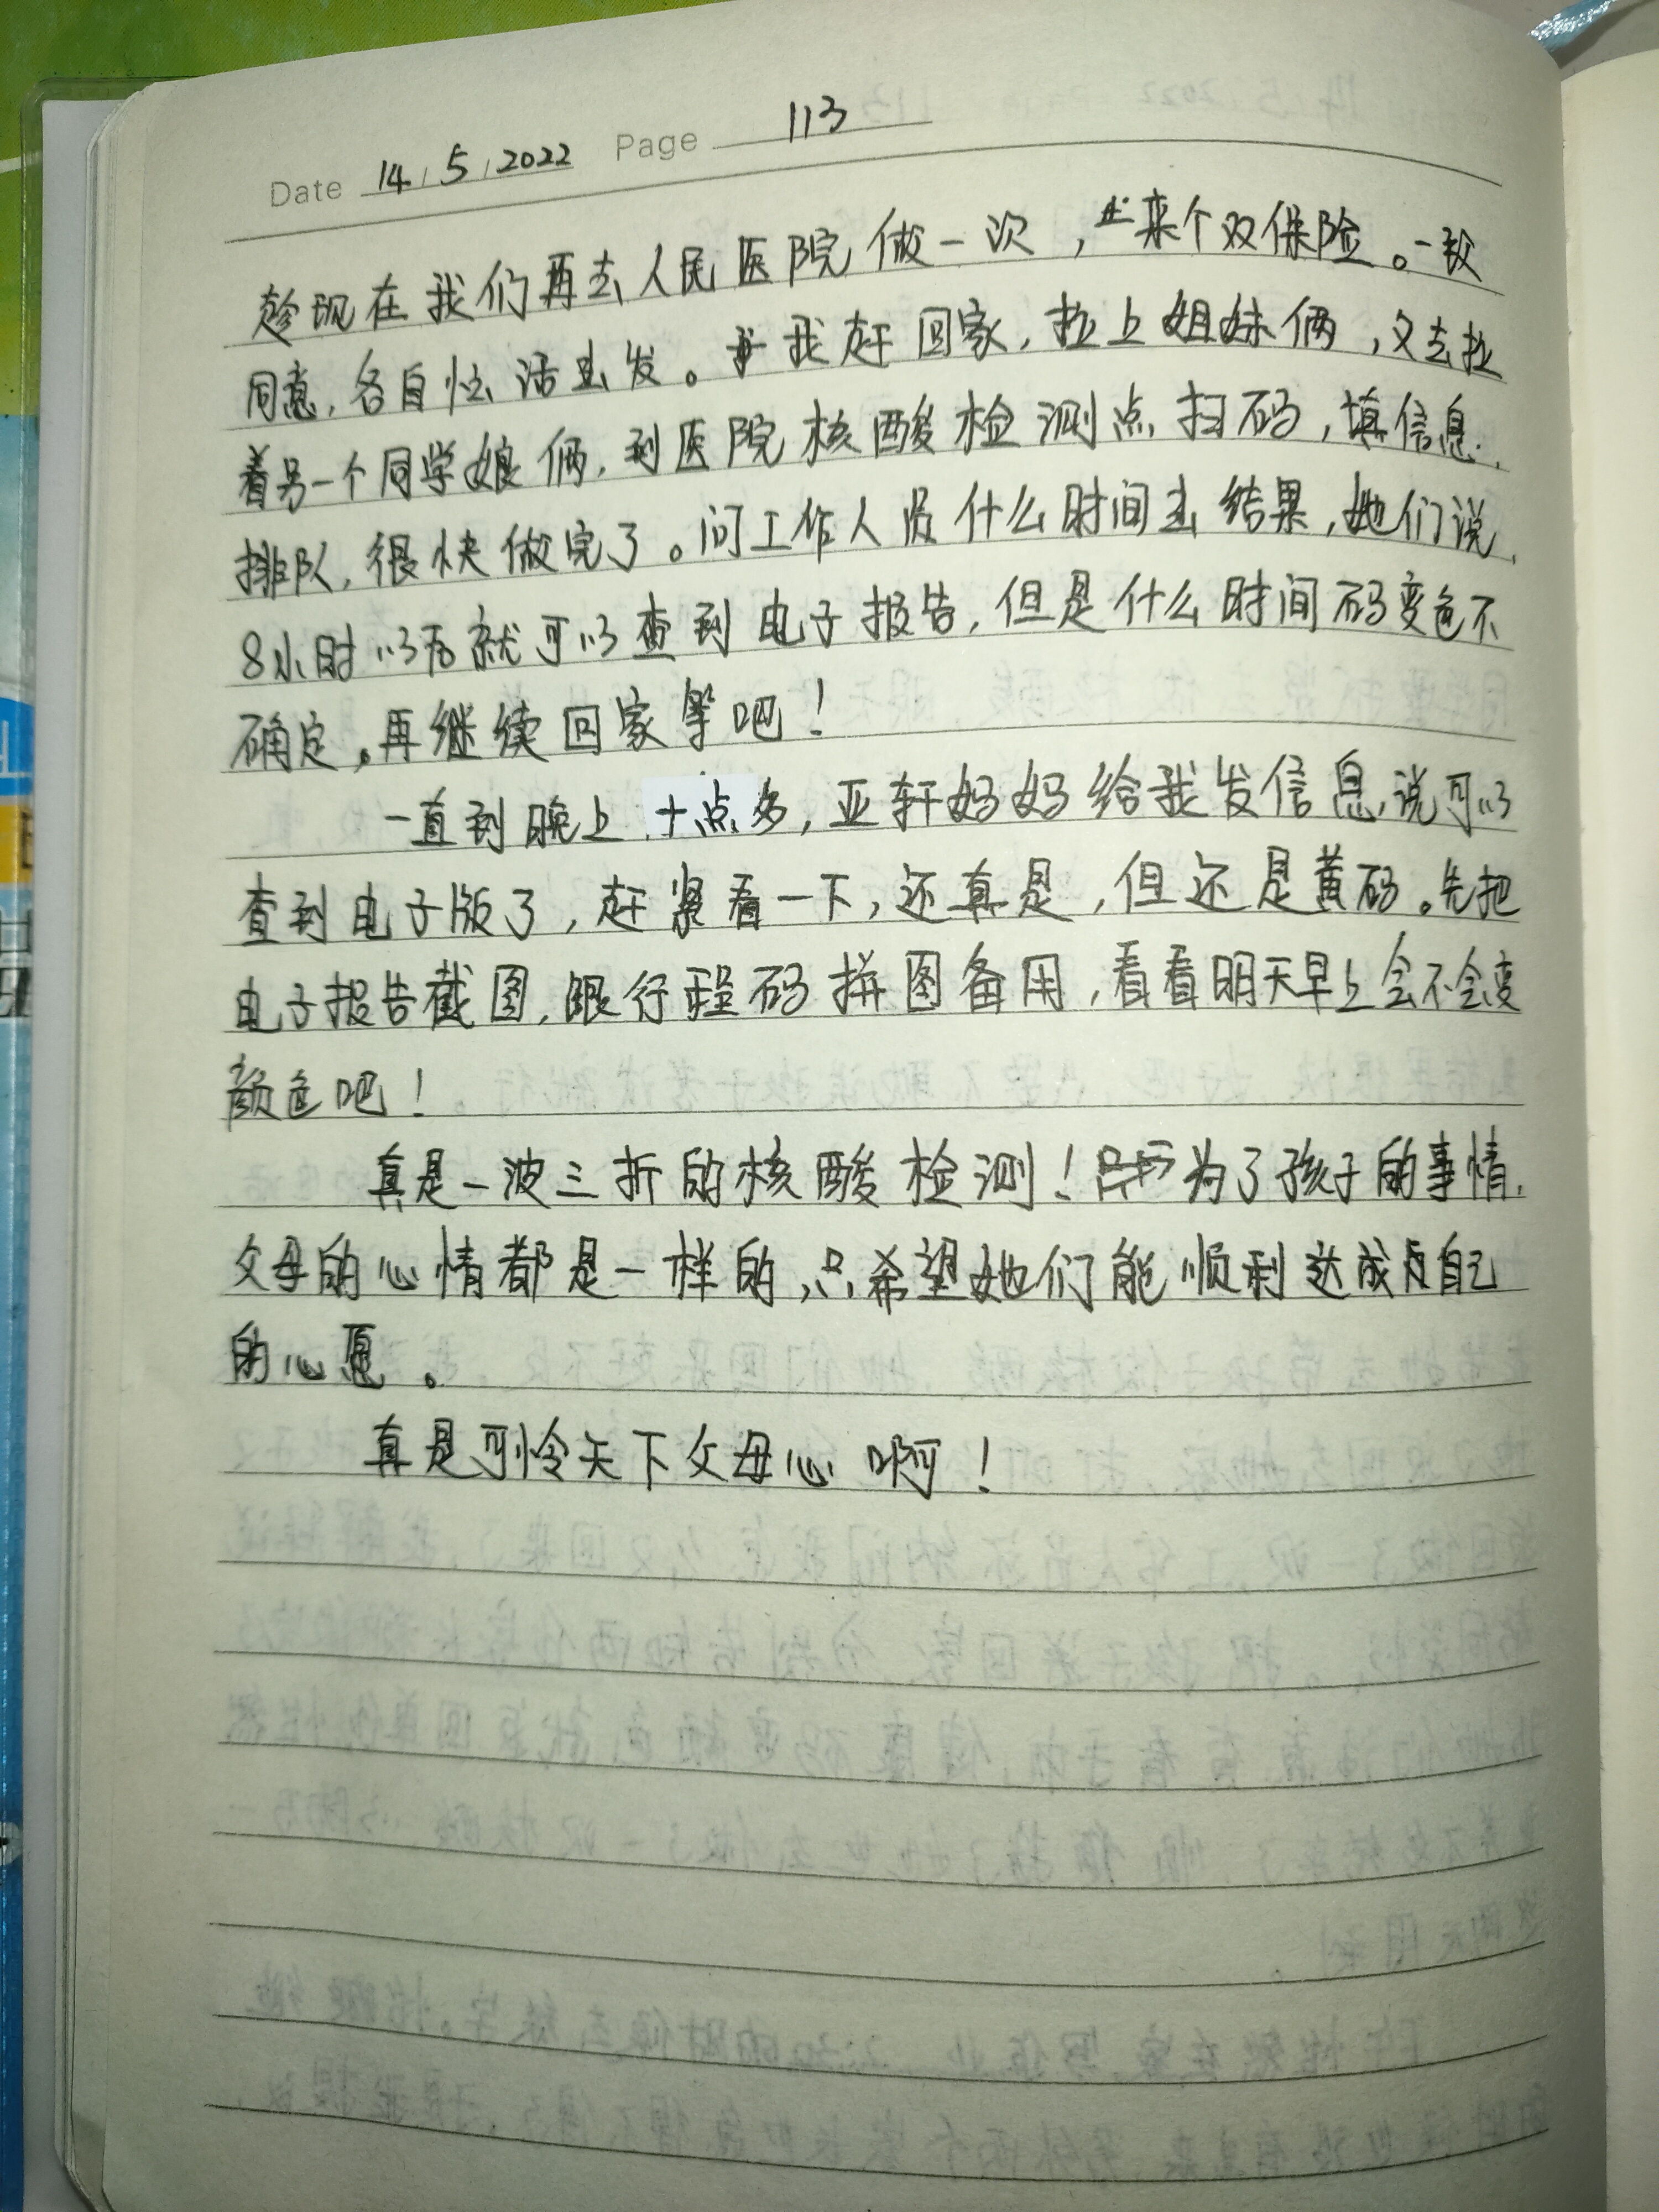 Date 14/5/2022 Page 113
趁现在我们再去人民医院做一次，来个双保险。一致
同意，各自忙活出发。我赶回家，拉上姐妹俩，又去拉
着另一个同学娘俩，到医院核酸检测点扫码，填信息，
排队，很快做完了。问工作人员什么时间出结果，她们说，
8小时以后就可以查到电子报告，但是什么时间码变色不
确定。再继续回家等吧！
一直到晚上十点多，亚轩妈妈给我发信息，说可以
查到电子版了，赶紧看一下，还真是，但还是黄码。先把
电子报告截图，跟行程码拼图备用，看看明天早上会不会变
颜色吧！
真是一波三折的核酸检测！为了孩子的事情，
父母的心情都是一样的，只希望她们能顺利达成自己
的心愿。
真是可怜天下父母心啊！